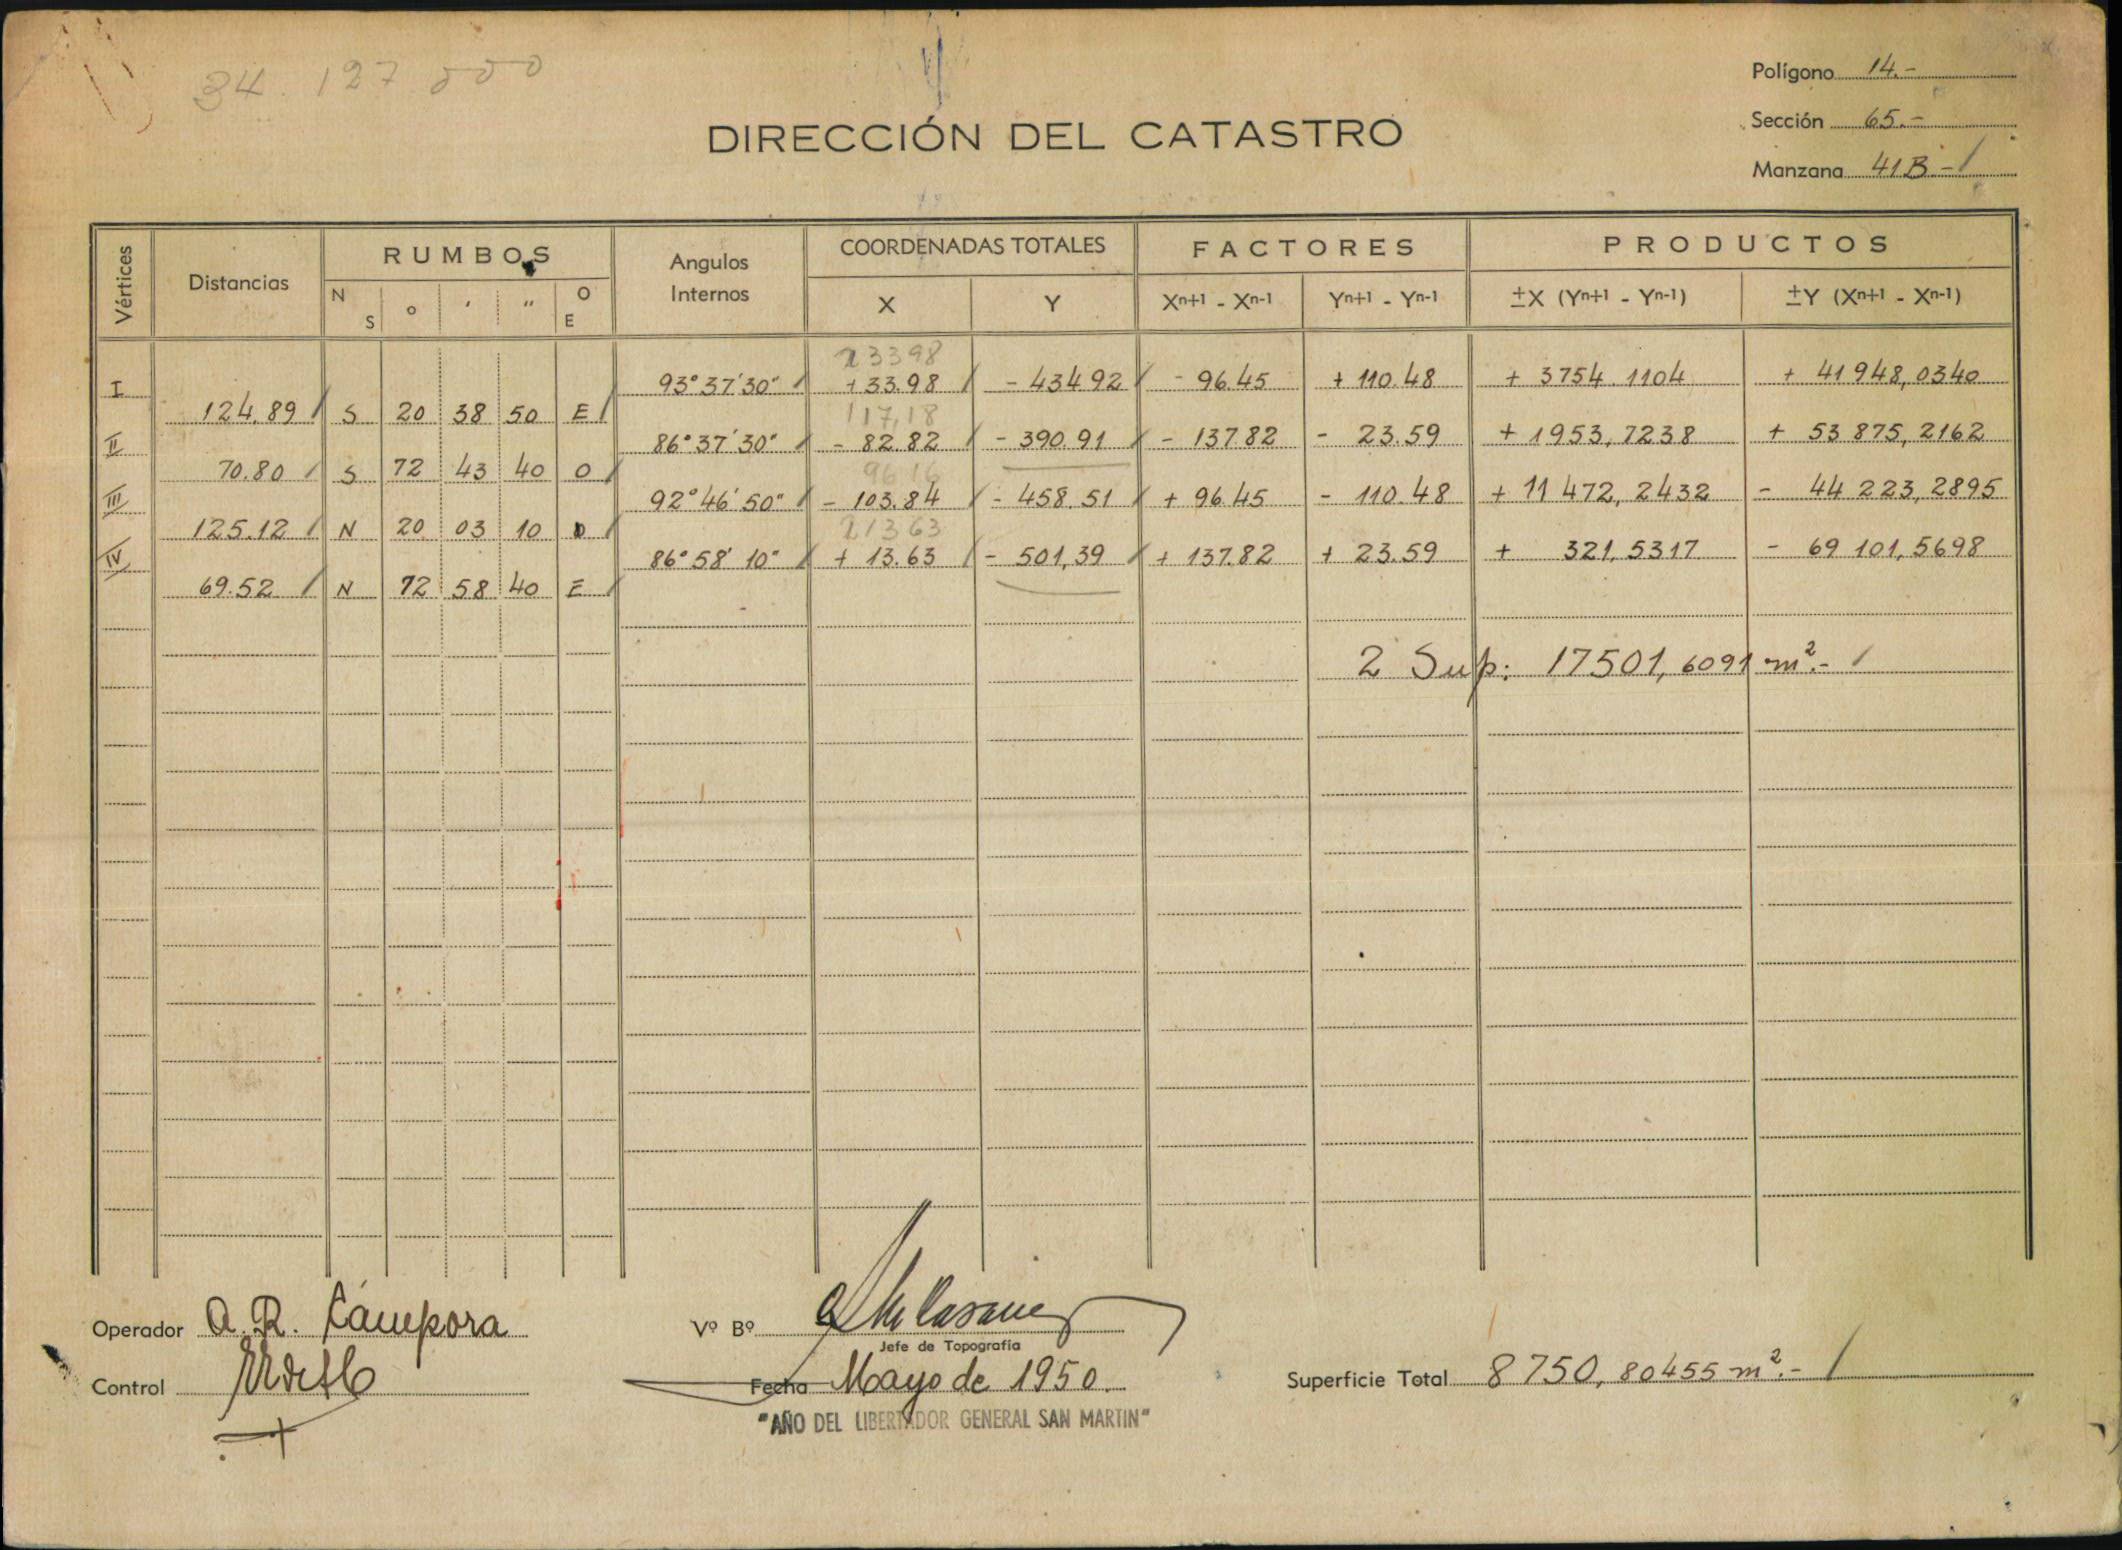 34.127 000
Polígono 14.-
Sección 65.-
Manzana 41B-/
DIRECCIÓN DEL CATASTRO
Vértices Distancias RUMBOS Angulos Internos COORDENADAS TOTALES FACTORES PRODUCTOS
N S ° ' " O E X Y Xn+1 - Xn-1 Yn+1 - Yn-1 ±X (Yn+1 - Yn-1) ±Y (Xn+1 - Xn-1)
23398
I 93°37'30" / +33.98 / - 434.92 / - 96.45 + 110.48 + 3754.1104 + 41 948,0340
124.89 / S 20 38 50 E /
117,18
II 86°37'30" / - 82.82 / - 390.91 / - 137.82 - 23.59 + 1953,7238 + 53 875,2162
70.80 / S 72 43 40 O /
96 16
III 92°46'50" / - 103.84 / - 458.51 / + 96.45 - 110.48 + 11 472,2432 - 44 223,2895
125.12 / N 20 03 10 O /
21363
IV 86°58'10" / + 13.63 / - 501,39 / + 137.82 + 23.59 + 321,5317 - 69 101,5698
69.52 / N 72 58 40 E /
2 Sup: 17501,6091 m².- /
Operador A. R. Cámpora
Vº Bº
Jefe de Topografía
Control
Fecha Mayo de 1950.
Superficie Total 8750,80455 m².- /
"AÑO DEL LIBERTADOR GENERAL SAN MARTIN"